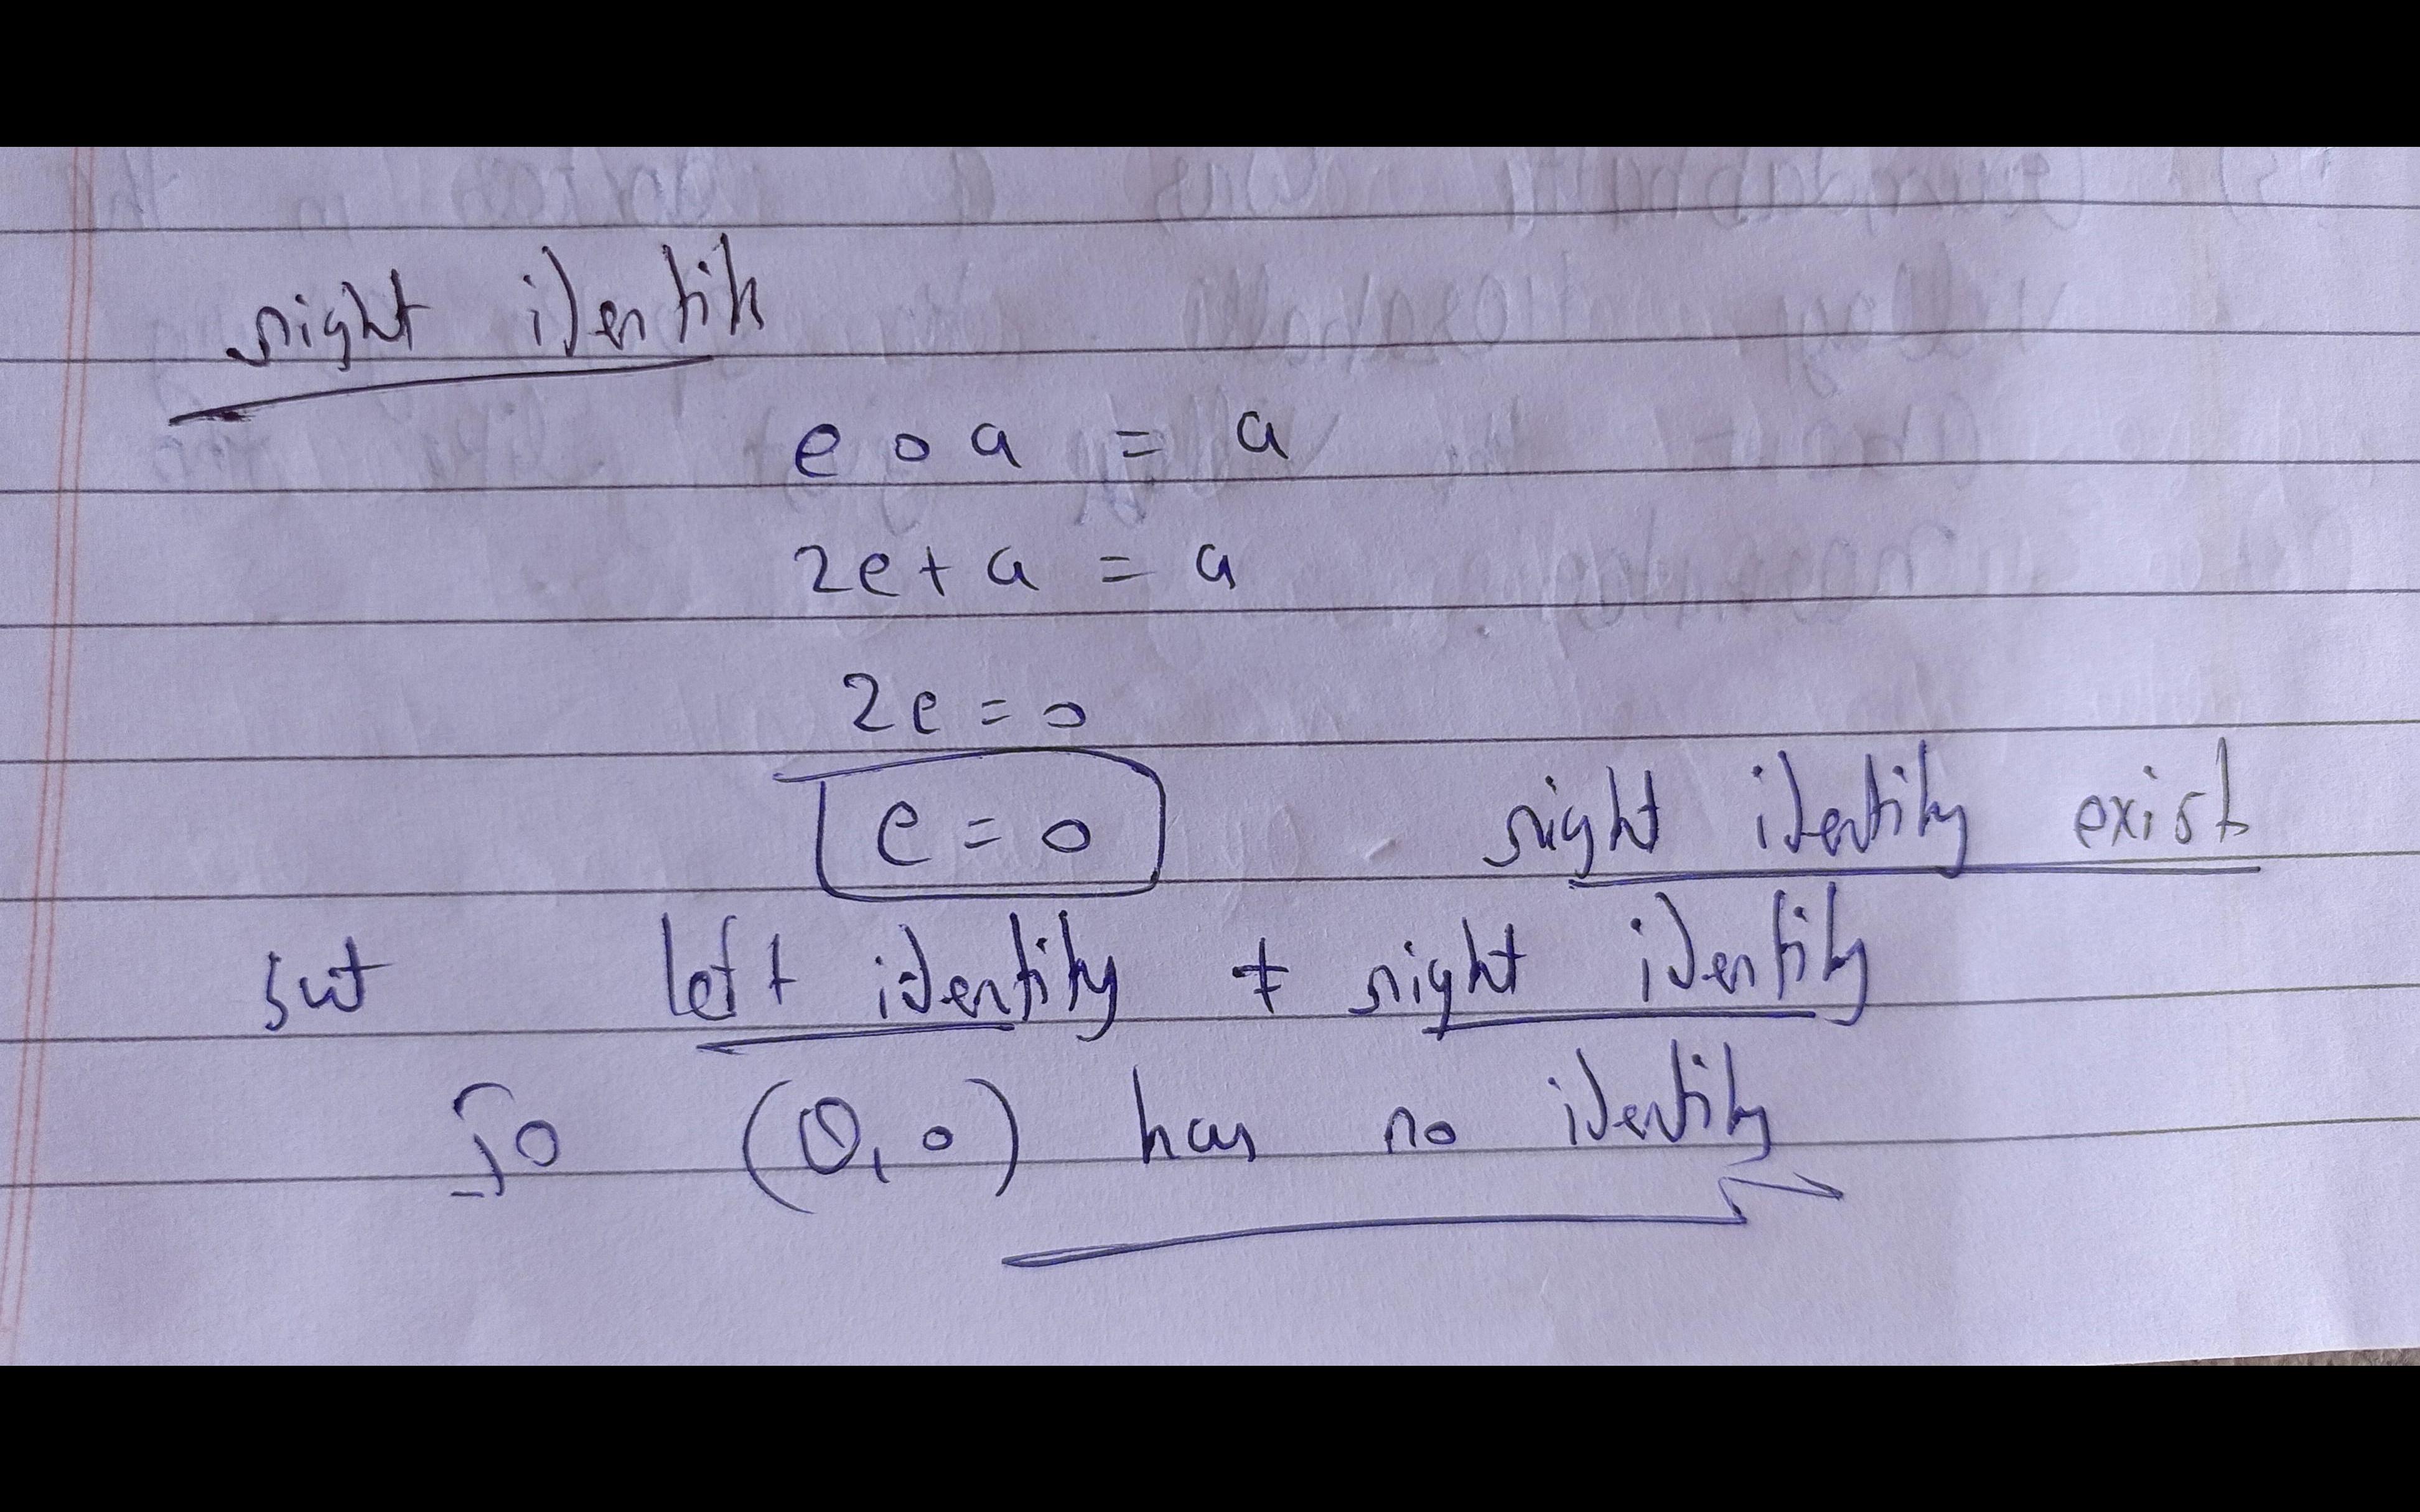 right identity
e o a = a
2e + a = a
2e = 0
e = 0 right identity exist
but left identity ≠ right identity
So (Q, o) has no identity